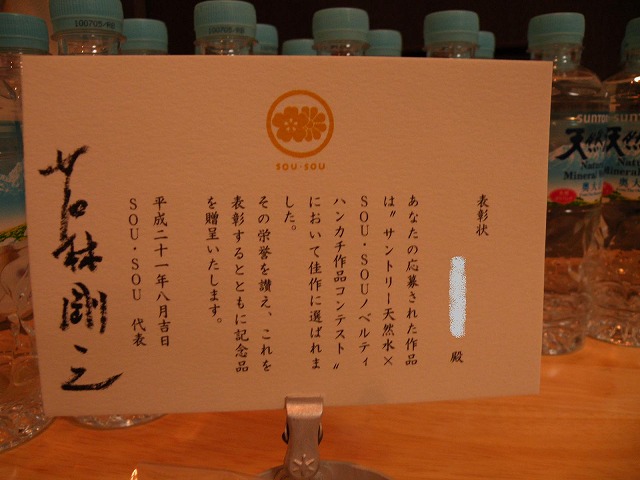 100705-KB
SOU・SOU
表彰状
殿
あなたの応募された作品
は〝サントリー天然水×
SOU・SOUノベルティ
ハンカチ作品コンテスト〟
において佳作に選ばれま
した。
その栄誉を讃え、これを
表彰するとともに記念品
を贈呈いたします。
平成二十一年八月吉日
SOU・SOU 代表
若林剛之
SUNTORY
天然
Natu
Mineral
奥大
SUNTO
天然
Natur
Mineral W
奥大